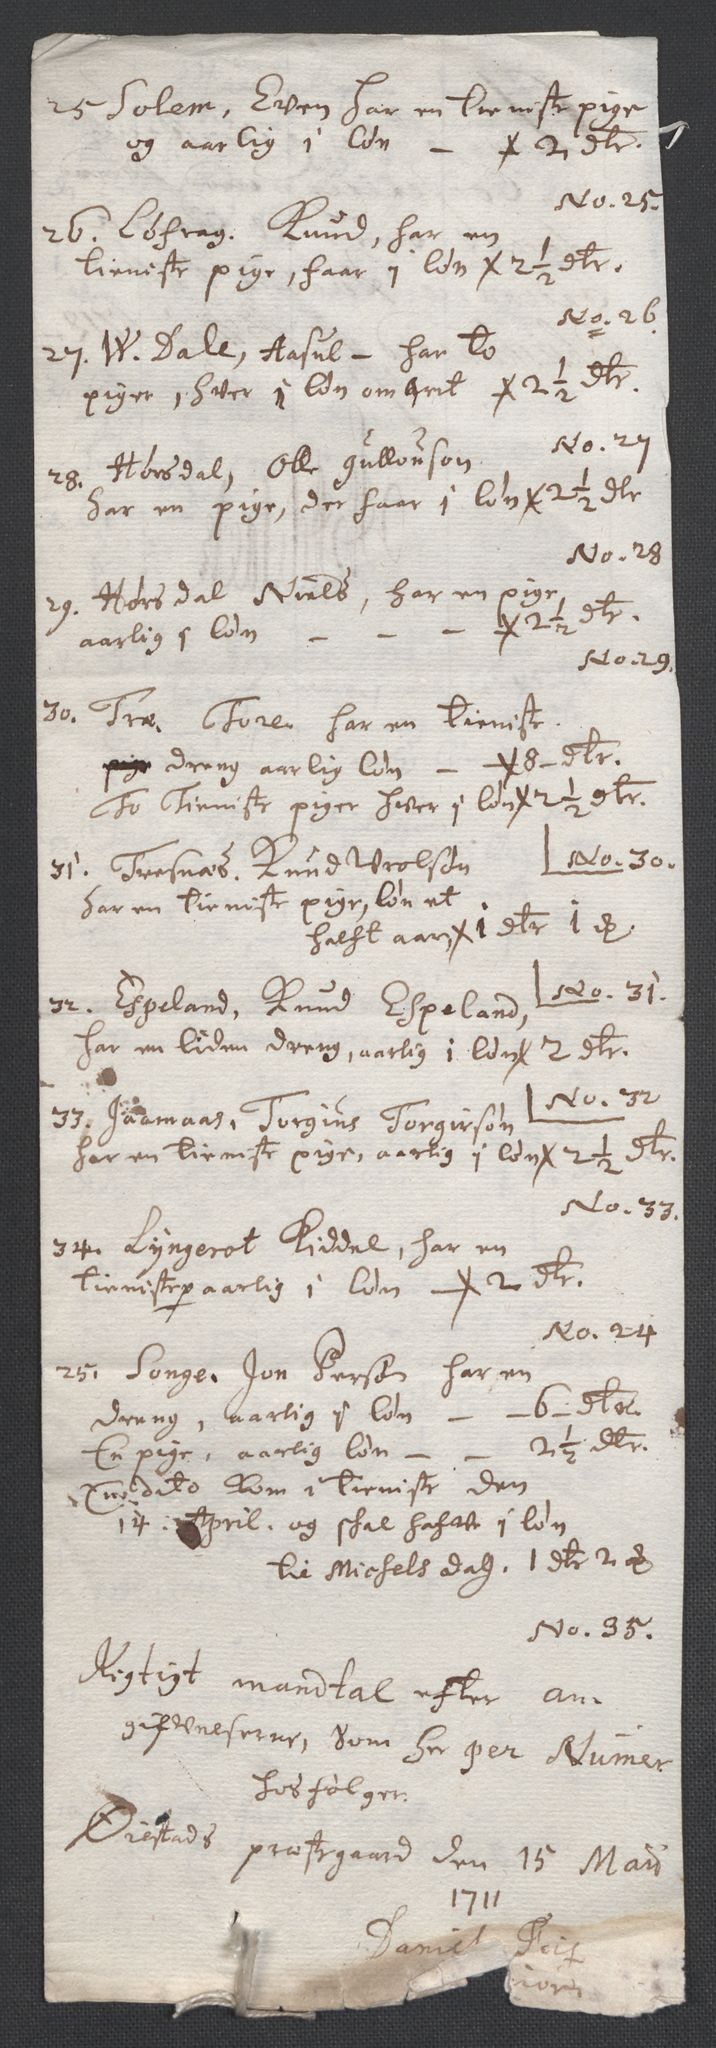 25 Solem, Even har en tieniste pige
og aarlig i løn - 2 dlr.
No. 25.
26. Løfrag. Knud, har en
tieniste pige, faar i løn 2½ dlr.
No. 26.
27. W. Dale, Aasul - har to
piger, hver i løn omtrit 2½ dlr.
No. 27
28. Hørsdal, Olle gullouson
har en pige, der faar i løn 2½ dlr
No. 28
29. Hørsdal Niels, har en pige,
aarlig i løn - - - 2½ dlr.
No. 29.
30. Træ. Tore. har en tieniste
dreng aarlig løn - 8 - dlr.
To Tieniste piger hver i løn 2½ dlr.
No. 30.
31. Tresnæs. Knud Vrolsøn
har en tieniste pige, løn et
halft aar, 1 dlr 1
No. 31.
32. Espeland, Knud Espeland,
har en liden dreng, aarlig i løn 2 dlr.
No. 32
33. Jaamaas, Torgius Torgirsøn
har en tieniste pige, aarlig i løn 2½ dlr.
No. 33.
34. Lyngerot Kiddel, har en
tienistep aarlig i løn - 2 dlr.
No. 24
25. Songe. Jon Person har en
dreng, aarlig i løn - - 6 - dlr.
En pige, aarlig løn - - 2½ dlr.
dito kom i tieniste den
14. April. og skal hafve i løn
til Michels dag. 1 dlr 2
No. 35.
Rigtigt mandtal efter an-
gifvelserne, som her per Numer
hosfølger.
Øiestads præstegaard den 15 Maii
1711
Daniel